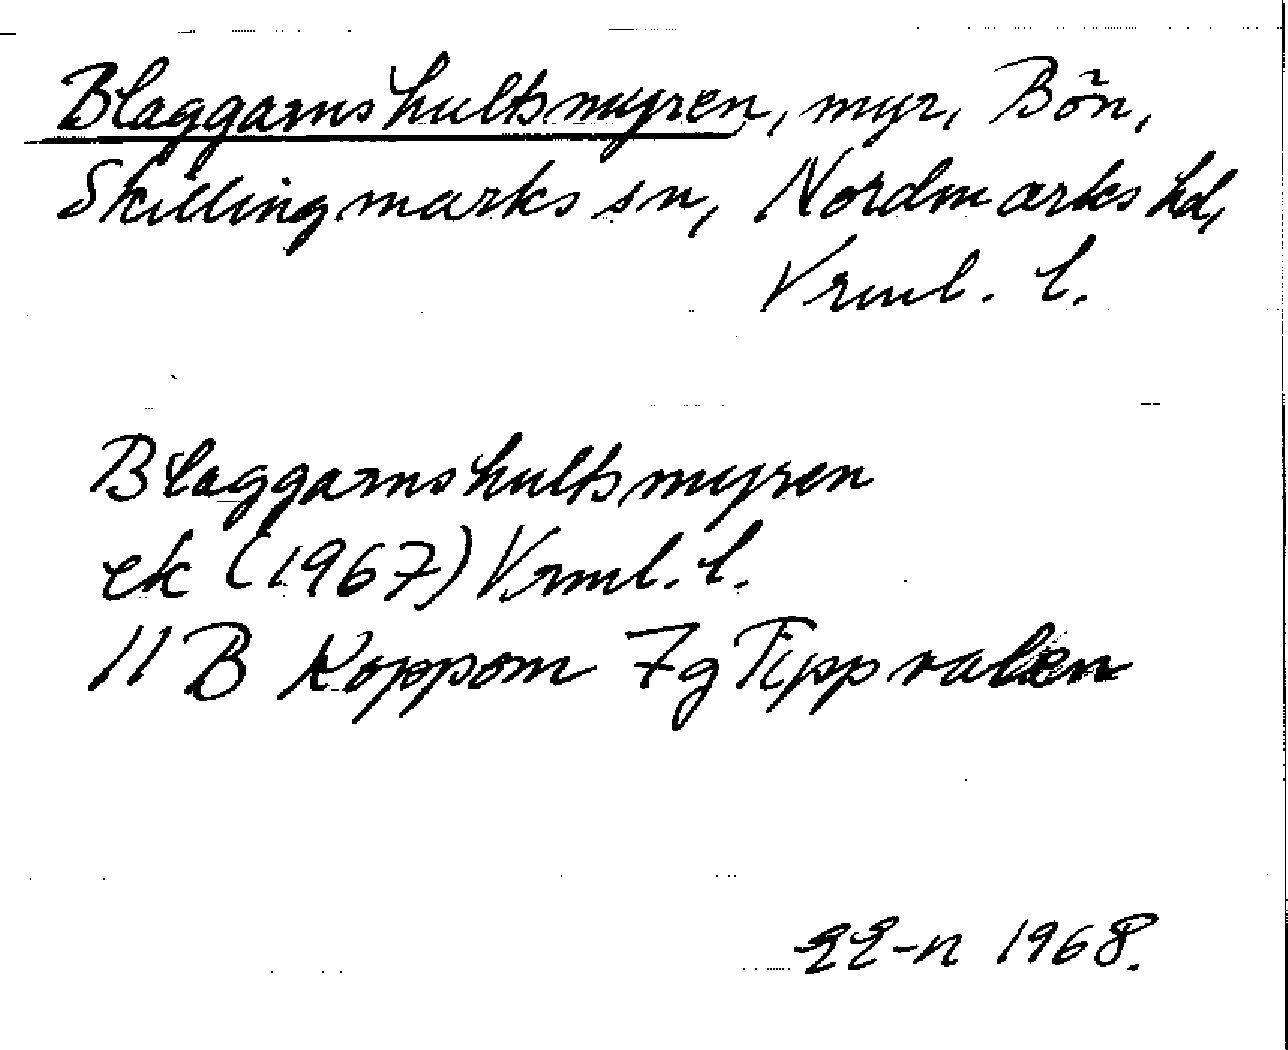 Blaggarnshultsmyren, myr, Bön,
Skillingmarks sn, Nordmarks hd,
Vrml. l.
Blaggarnshultsmyren
ek (1967) Vrml. l.
11 B Koppom 7g Tippvalen
EE-n 1968.